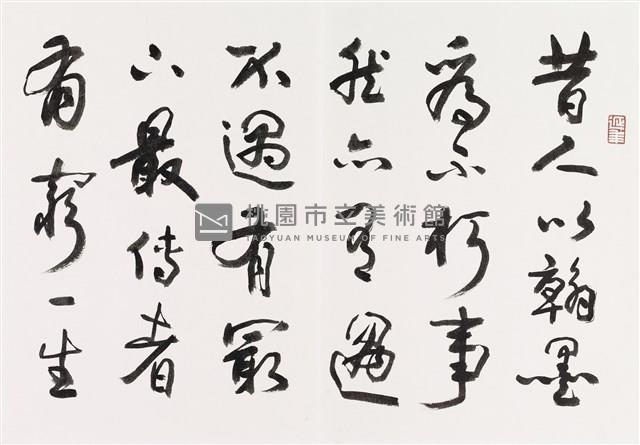 昔人以翰墨
為不朽事
然亦有遇
不遇有最
下最傳者
有窮一生
桃園市立美術館
TAOYUAN MUSEUM OF FINE ARTS